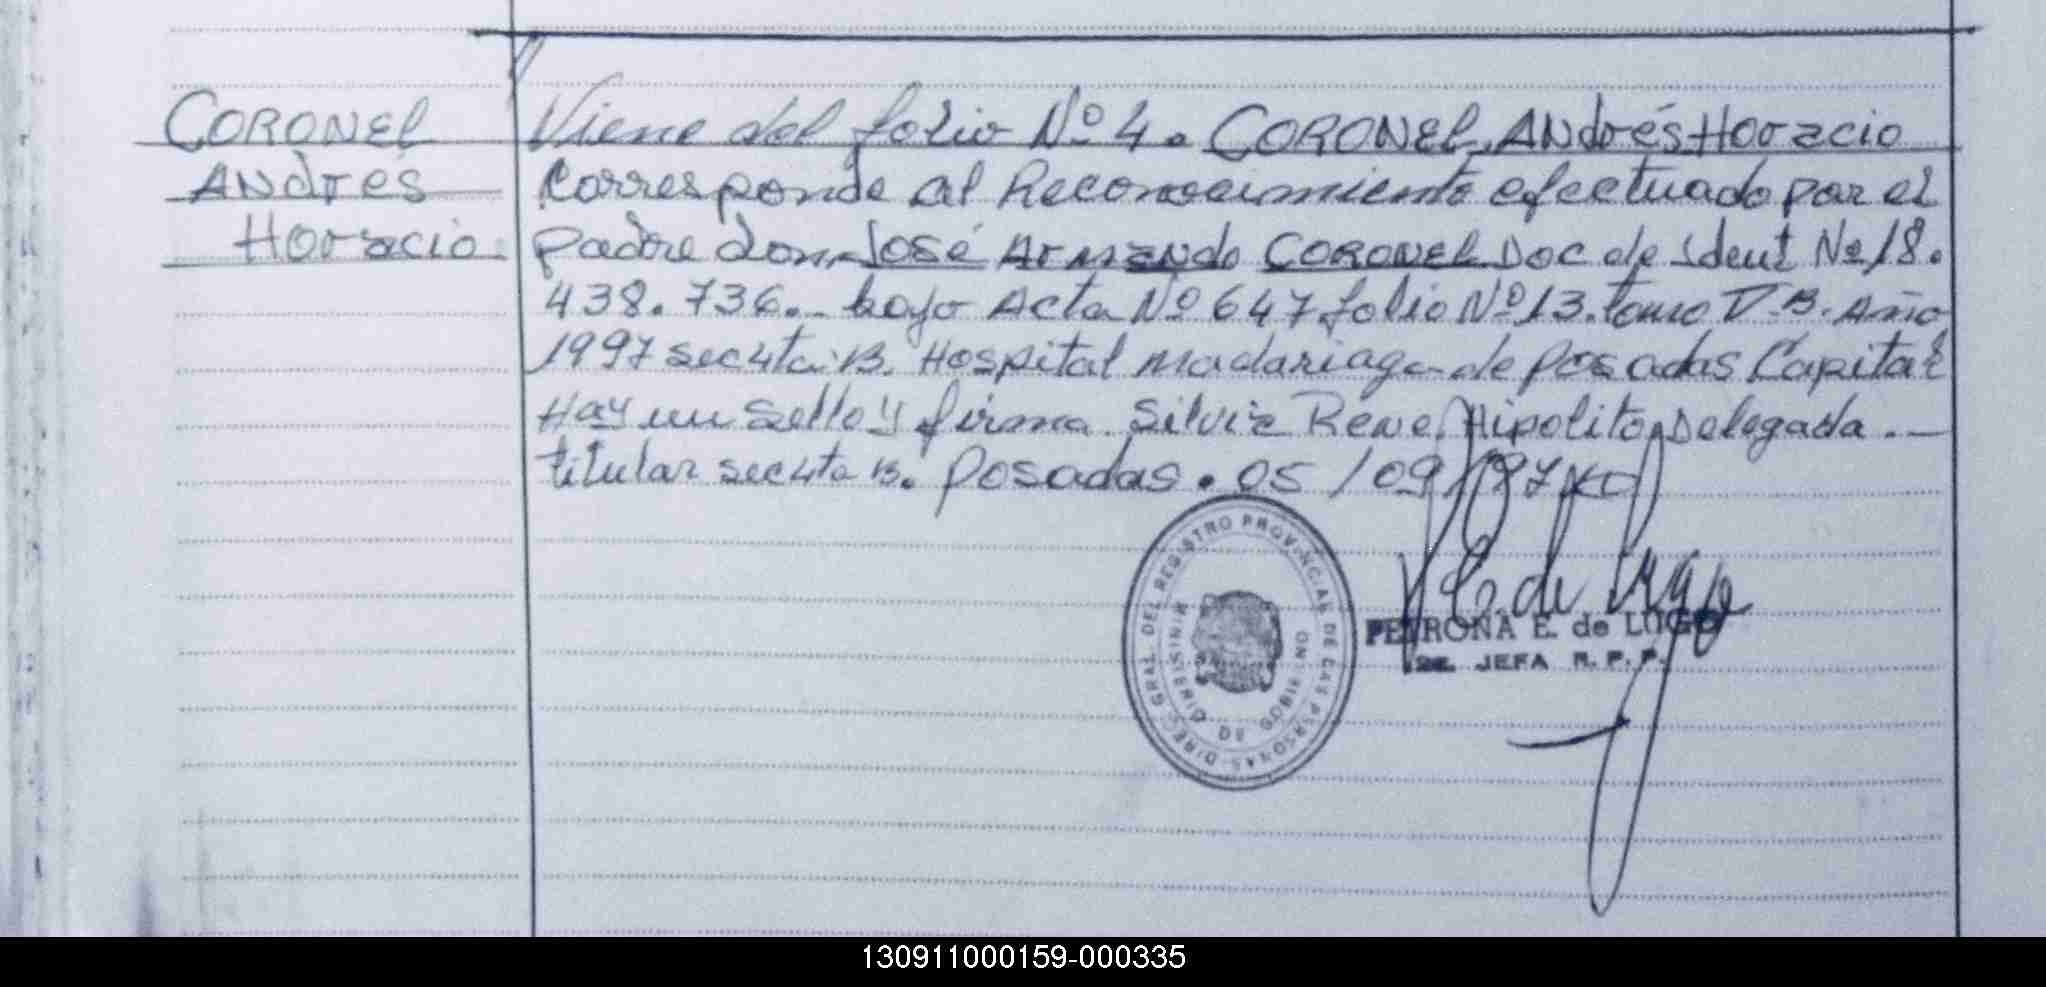 CORONEL
ANdrés
Horacio
Viene del folio Nº 4. CORONEL, ANdrés Horacio
Corresponde al Reconocimiento efectuado por el
padre don José Armando CORONEL Doc de Ident Nº 18.
438.736._ bajo Acta Nº 647 folio Nº 13. tomo V-B. Año
1997 sec 4ta B. Hospital Madariaga de Posadas Capital
Hay un Sello y firma. Silvia Rene Hipolito, Delegada._
titular sec 4ta B. Posadas. 05/09/97
DIREC. GRAL. DEL REGISTRO PROVINCIAL DE LAS PERSONAS
MINISTERIO DE GOBIERNO
PETRONA E. de LUGO
JEFA R.P.P.
130911000159-000335